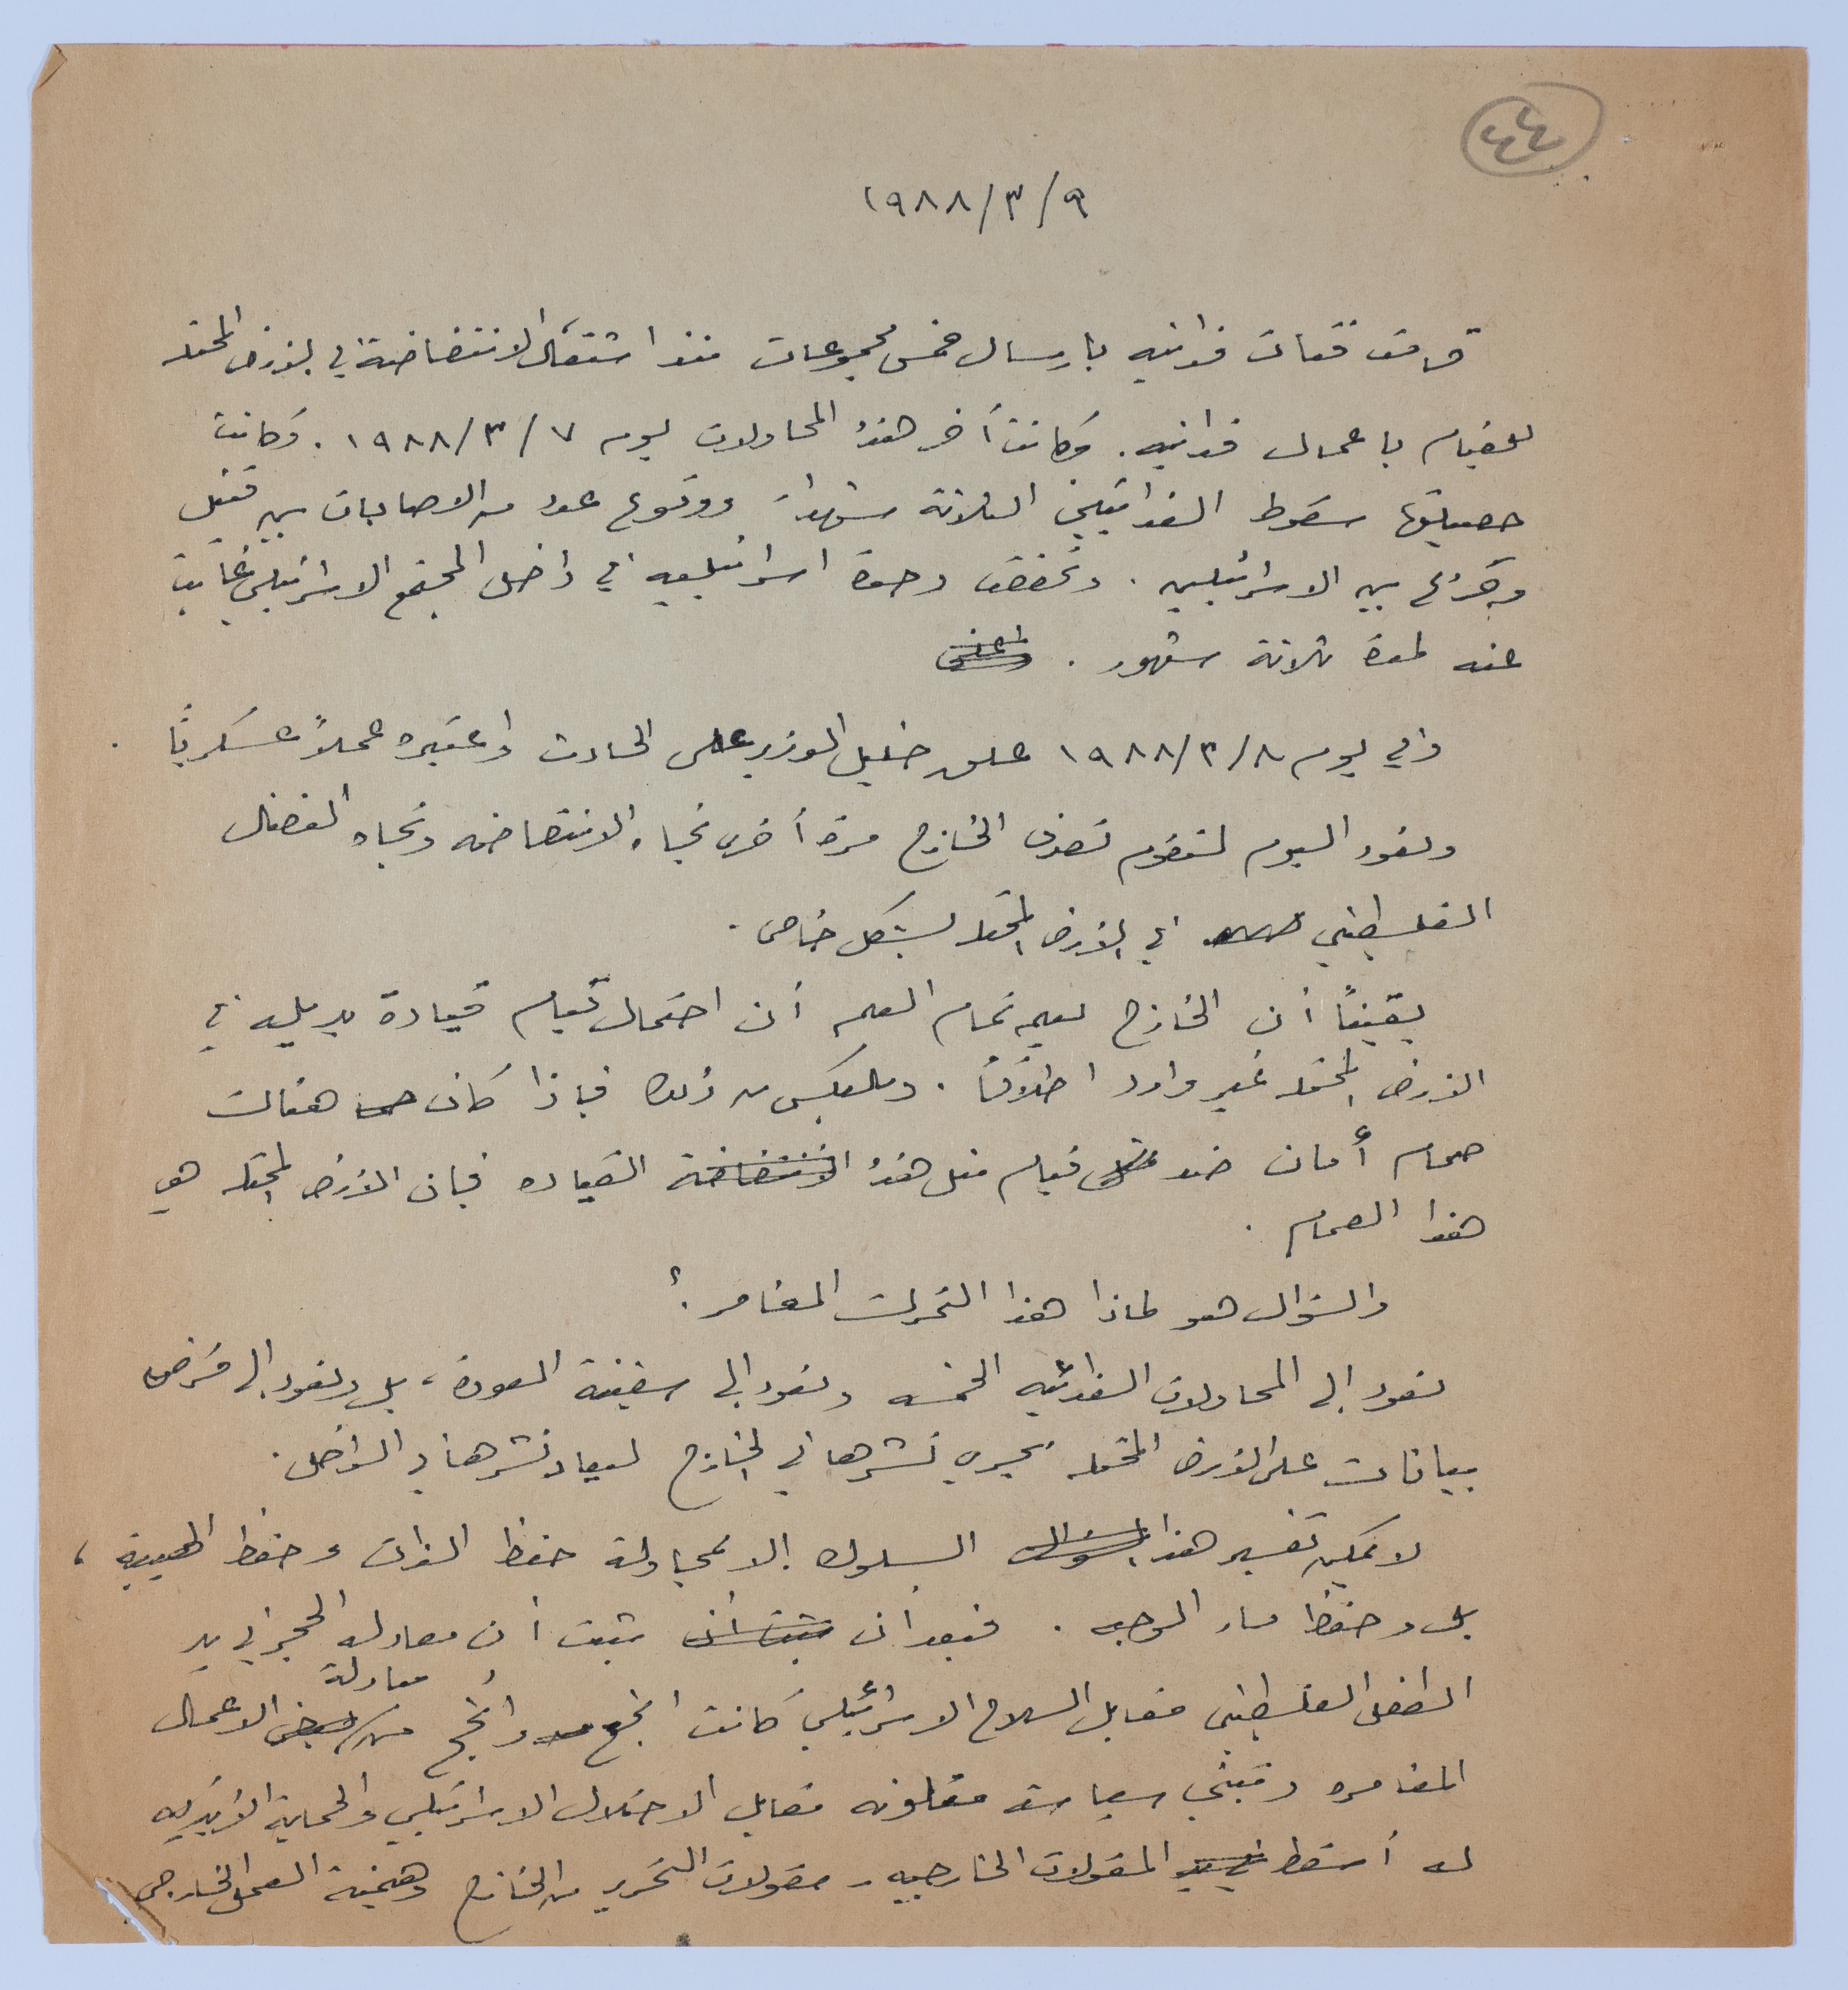 ٤٤
١٩٨٨/٣/٩
قامت فئات فدائيه بارسال خمس مجموعات منذ اشتعال الانتفاضة في الارض المحتله
للقيام باعمال فدائيه. وكانت أخر هذه المحاولات يوم ١٩٨٨/٣/٧. وكانت
حصيلتها سقوط الفدائيين الثلاثة شهداء ووقوع عدد من الاصابات بين قتيل
وجريح بين الاسرائيليين. وتحققت وحدة اسرائيليه في داخل المجتمع الاسرائيلي غابت
عنه لمدة ثلاثة شهور.
وفي يوم ١٩٨٨/٣/٨ علق خليل الوزير على الحادث واعتبره عملاً عسكريًا.
ونعود اليوم لنقوم تصرف الخارج مرة أخرى تجاه الانتفاضه وتجاه النضال
الفلسطيني في الارض المحتله بشكل خاص.
يقينًا أن الخارج يعلم تمام العلم أن احتمال قيام قيادة بديله في
الارض المحتله غير وارد اطلاقًا. وبالعكس من ذلك فإذا كان هناك
صمام أمان ضد قيام مثل هذه الانتفاضة القياده فإن الأرض المحتله هي
هذا الصمام.
والسؤال هو لماذا هذا التحرك المغامر؟
نعود إلى المحاولات الفدائيه الخمسه ونعود إلى سفينة العودة، بل ونعود إلى فرض
بيانات على الارض المحتله يجري نشرها في الخارج ليعاد نشرها في الداخل.
لا يمكن تفسير هذا السؤال السلوك إلا بمحاولة حفظ الذات وحفظ الهيبة،
بل وحفظ ماء الوجه. فبعد أن ثبت أن ثبت أن معادلة الحجر في يد
الطفل الفلسطيني مقابل السلاح الاسرائيلي كانت انجع وأنجح من معادلة بعض الاعمال
المغامره وتبني سياسة مقابل الاحتلال الاسرائيلي والحماية الأمريكيه
له أسقط المقولات الخارجيه - مقولات التحرير من الخارج وهيمنة العمل الخارجي